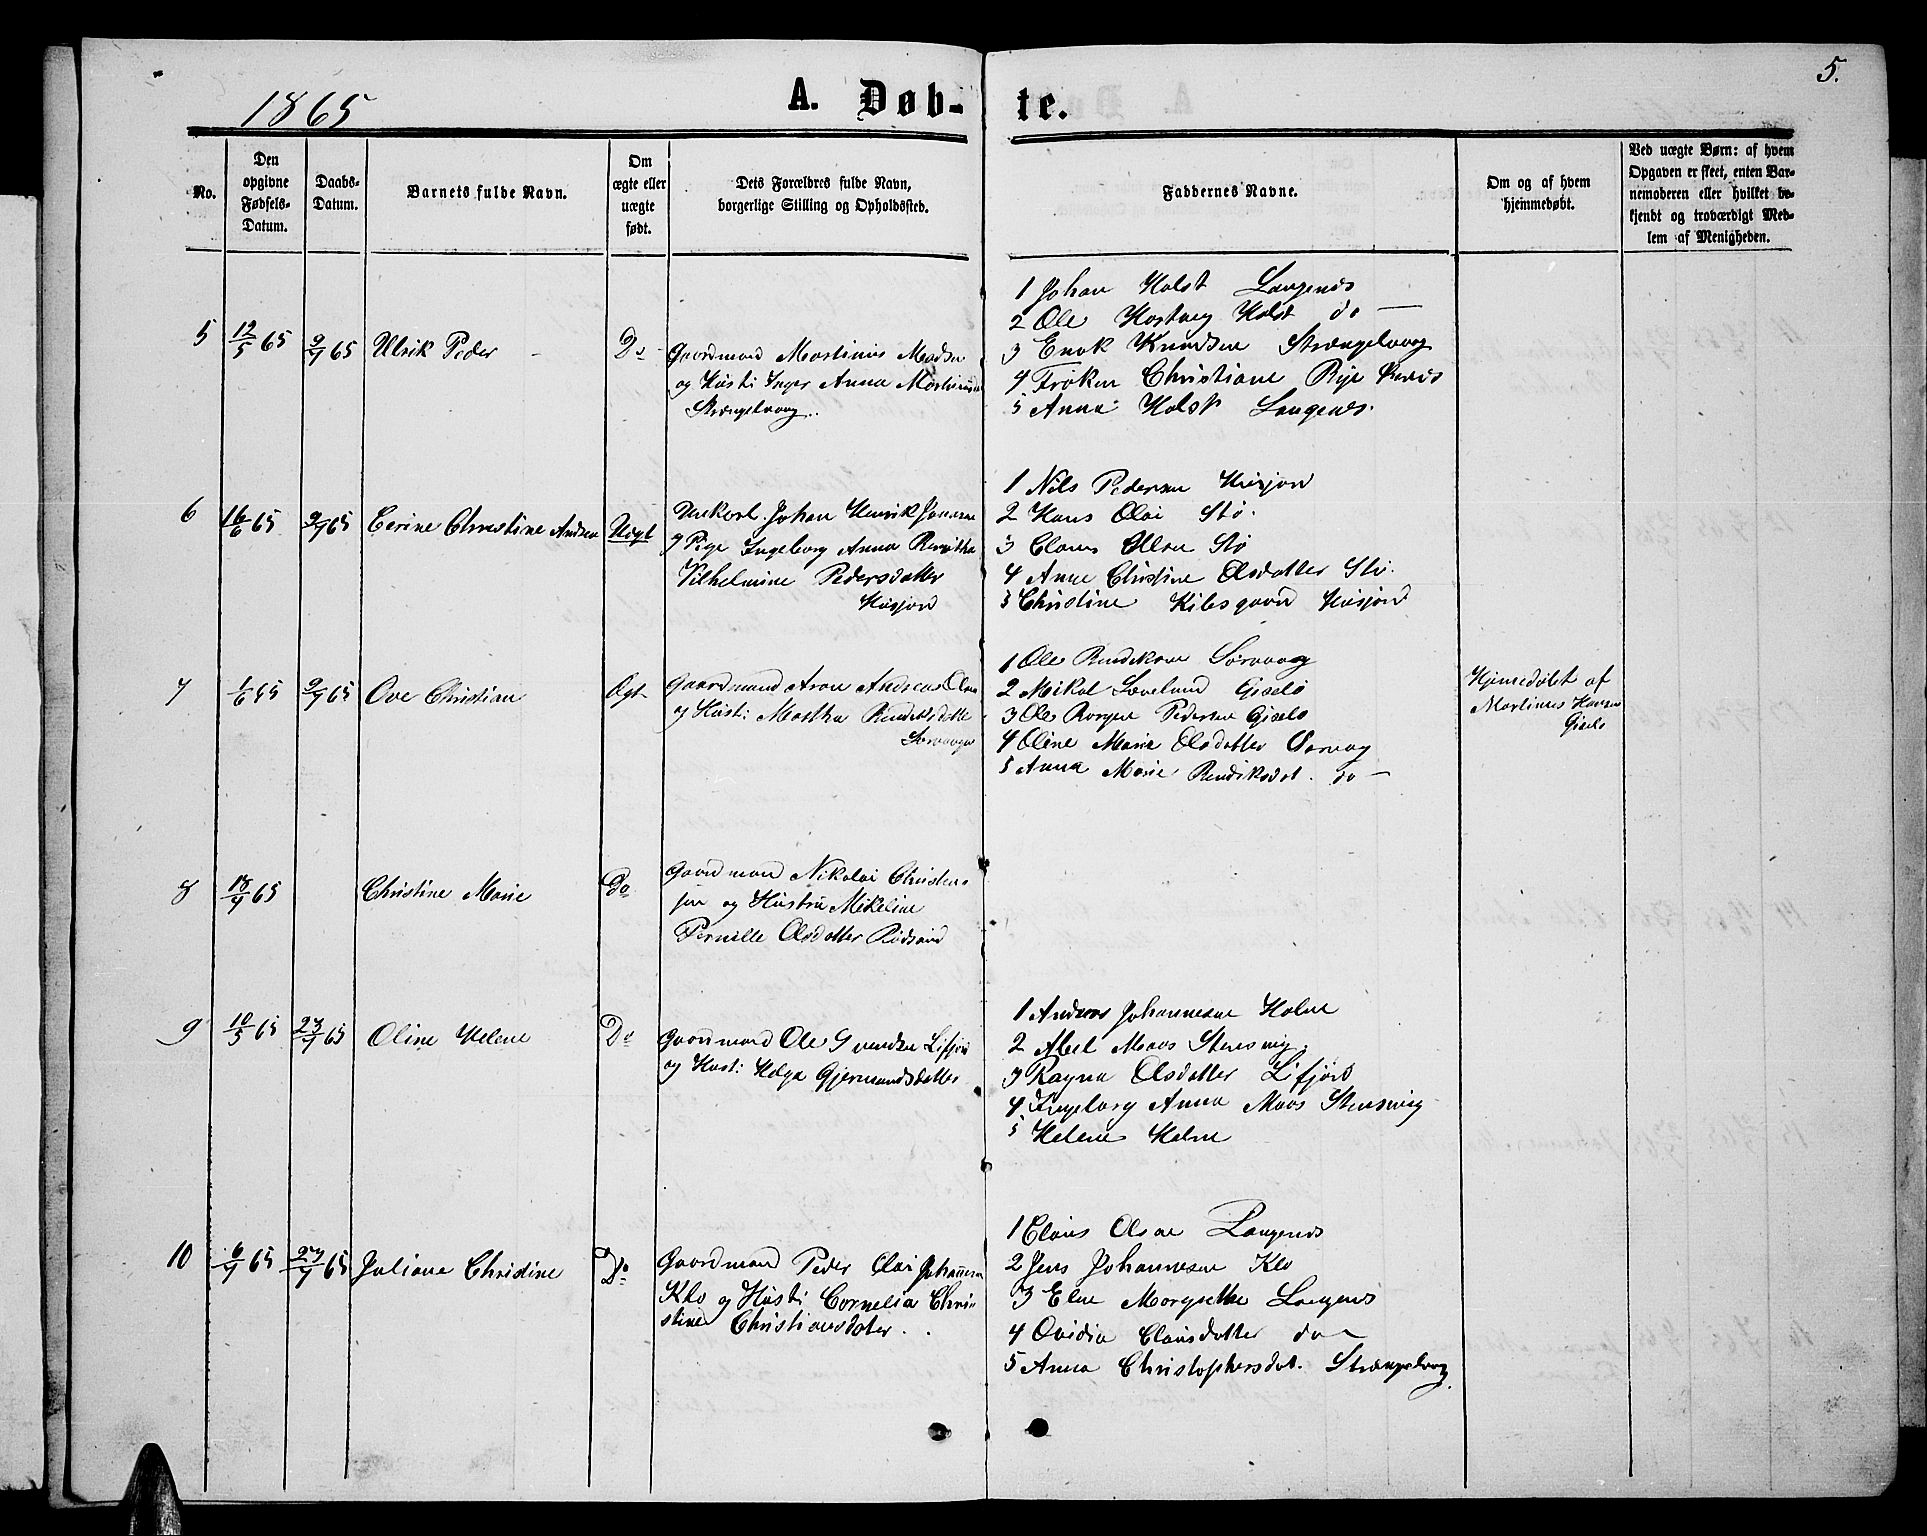 5.
1865
A. Døb- te.
No.
Den opgivne Fødsels-Datum.
Daabs-Datum.
Barnets fulde Navn.
Om ægte eller uægte født.
Dets Forældres fulde Navn, borgerlige Stilling og Opholdssted.
Faddernes Navne.
Om og af hvem hjemmedøbt.
Ved uægte Børn: af hvem Opgaven er skeet, enten Barnemoderen eller hvilket bekjendt og troværdigt Medlem af Menigheden.
5 12/5 65 9/7 65 Ulrik Peder Do
Gaardmand Martinus Madsen
og Hust: Inger Anna Martinusd
Strængelvaag.
1 Johan Holst Langenes
2 Ole Hartvig Holst do
3 Enok Knudsen Strængelvaag
4 Frøken Christiane Rye
5 Anna Holst Langenes.
6 16/6 65 9/7 65 Cerine Christine Andrea Uægt
Unekarl. Johan Henrik Jansen
Pige Ingeborg Anna
Vilhelmine Pedersdatter
Husjord
1 Nils Pedersen Husjord
2 Hans Olai Stø.
3 Claus Olsen Stø
4 Anne Christine Olsdatter Stø.
5 Christine Kilesgaard Husjord
7 1/6 65 9/7 65 Ove Christian Ægt
Gaardmand Aron Andreas Olsen
og Hust: Martha Rendiksdatter
Sørvaagen
1 Ole Rendiksen Sørvaag
2 Mikal Løvelund Gisslø
3 Ole Pedersen Gisslø
4 Oline Marie Olsdatter Sørvaag
5 Anna Marie Rendiksdat. do
Hjemmedøbt af
Martinus Hansen
Gislø
8 18/7 65 Christine Marie Do
Gaardmand Nikolai Christen-
sen og Hustru Mikeline
Pernille Olsdatter Rødsand
9 10/5 65 23/7 65 Oline Helene Do
Gaardmand Ole Svendsen Lifjord
og Hust: Helga Gjermundsdatter
1 Andreas Johannesen Holm
2 Abel Maas Stensvig.
3 Ragna Olsdatter Lifjord
4 Ingeborg Anna Maas Stensvig
5 Helene Holm
10 6/7 65 23/7 65 Juliane Christine Do
Gaardmand Peder Olai Johannesen
Klo og Hust: Cornelia Chri-
stine Christiansdater.
1 Claus Olsen Langenes
2 Jens Johannesen Klo
3 Elen Margrethe Langenes
4 Ovidia Clausdatter do
5 Anna Christophersdat. Strængelvaag